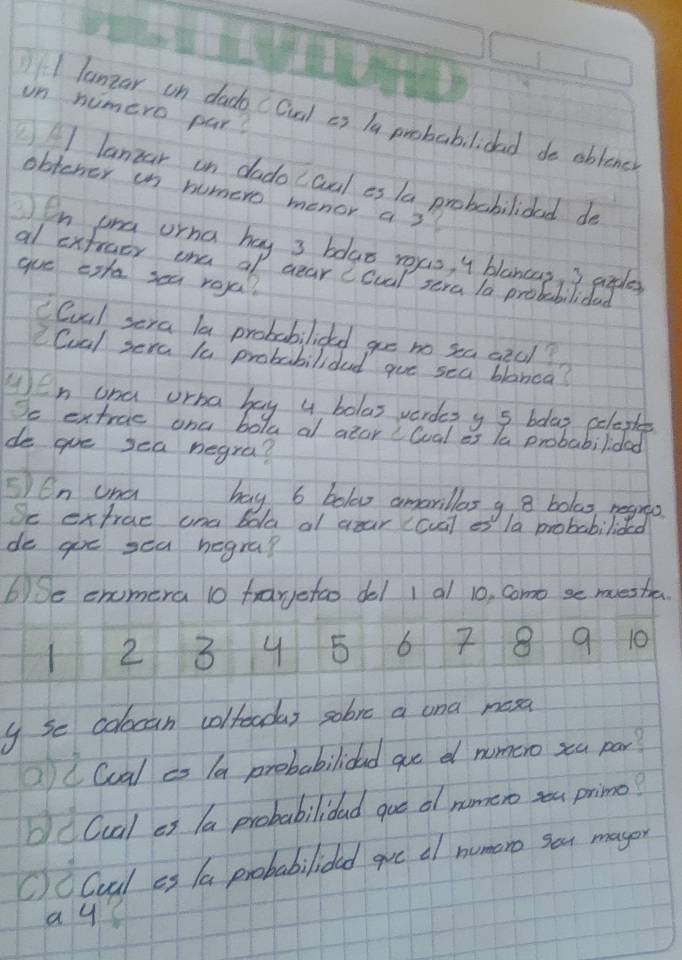 ACTIVIDAD
1) Al lanzar un dado ¿Cual es la probabilidad de obtener
un número par?
2) Al lanzar un dado ¿Cual es la probabilidad de
obtener un numero menor a 3?
3) En una urna hay 3 bolas rojas, 4 blancas, 3 azules
al extraer una al azar ¿Cual sera la probabilidad
que esta sea roja?
¿Cual sera la probabilidad que no sea azul?
¿Cual sera la probabilidad que sea blanca?
4) En una urna hay 4 bolas verdes y 5 bolas celestes
Se extrae una bola al azar ¿Cual es la probabilidad
de que sea negra?
5) En una hay 6 bolas amarillas y 8 bolas negras.
Se extrae una bola al azar ¿Cual es la probabilidad
de que sea negra?
6) Se enumera 10 tarjetas del 1 al 10, como se muestra.
1 2 3 4 5 6 7 8 9 10
y se colocan volteadas sobre a una mesa
a) ¿Cual es la probabilidad que el numero sea par?
b) ¿Cual es la probabilidad que el numero sea primo?
c) ¿Cual es la probabilidad que el numero sea mayor
a 4?